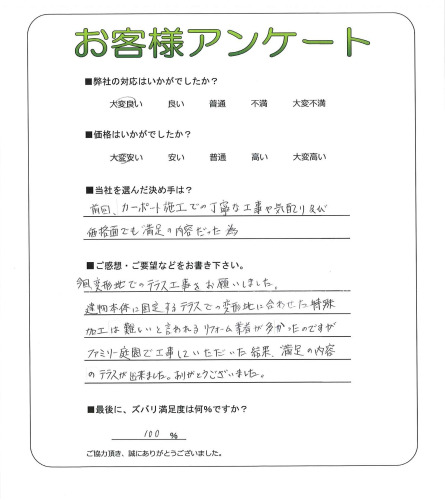 お客様アンケート
■弊社の対応はいかがでしたか？
大変良い 良い 普通 不満 大変不満
■価格はいかがでしたか？
大変安い 安い 普通 高い 大変高い
■当社を選んだ決め手は？
前回、カーポート施工での丁寧な工事や気配り及び
価格面でも満足の内容だった為
■ご感想・ご要望などをお書き下さい。
今回変形地でのテラス工事をお願いしました。
建物本体に固定するテラスでの変形地に合わせた特殊
加工は難しいと言われるリフォーム業者が多かったのですが
ファミリー庭園で工事していただいた結果、満足の内容
のテラスが出来ました。ありがとうございました。
■最後に、ズバリ満足度は何%ですか？
100 %
ご協力頂き、誠にありがとうございました。